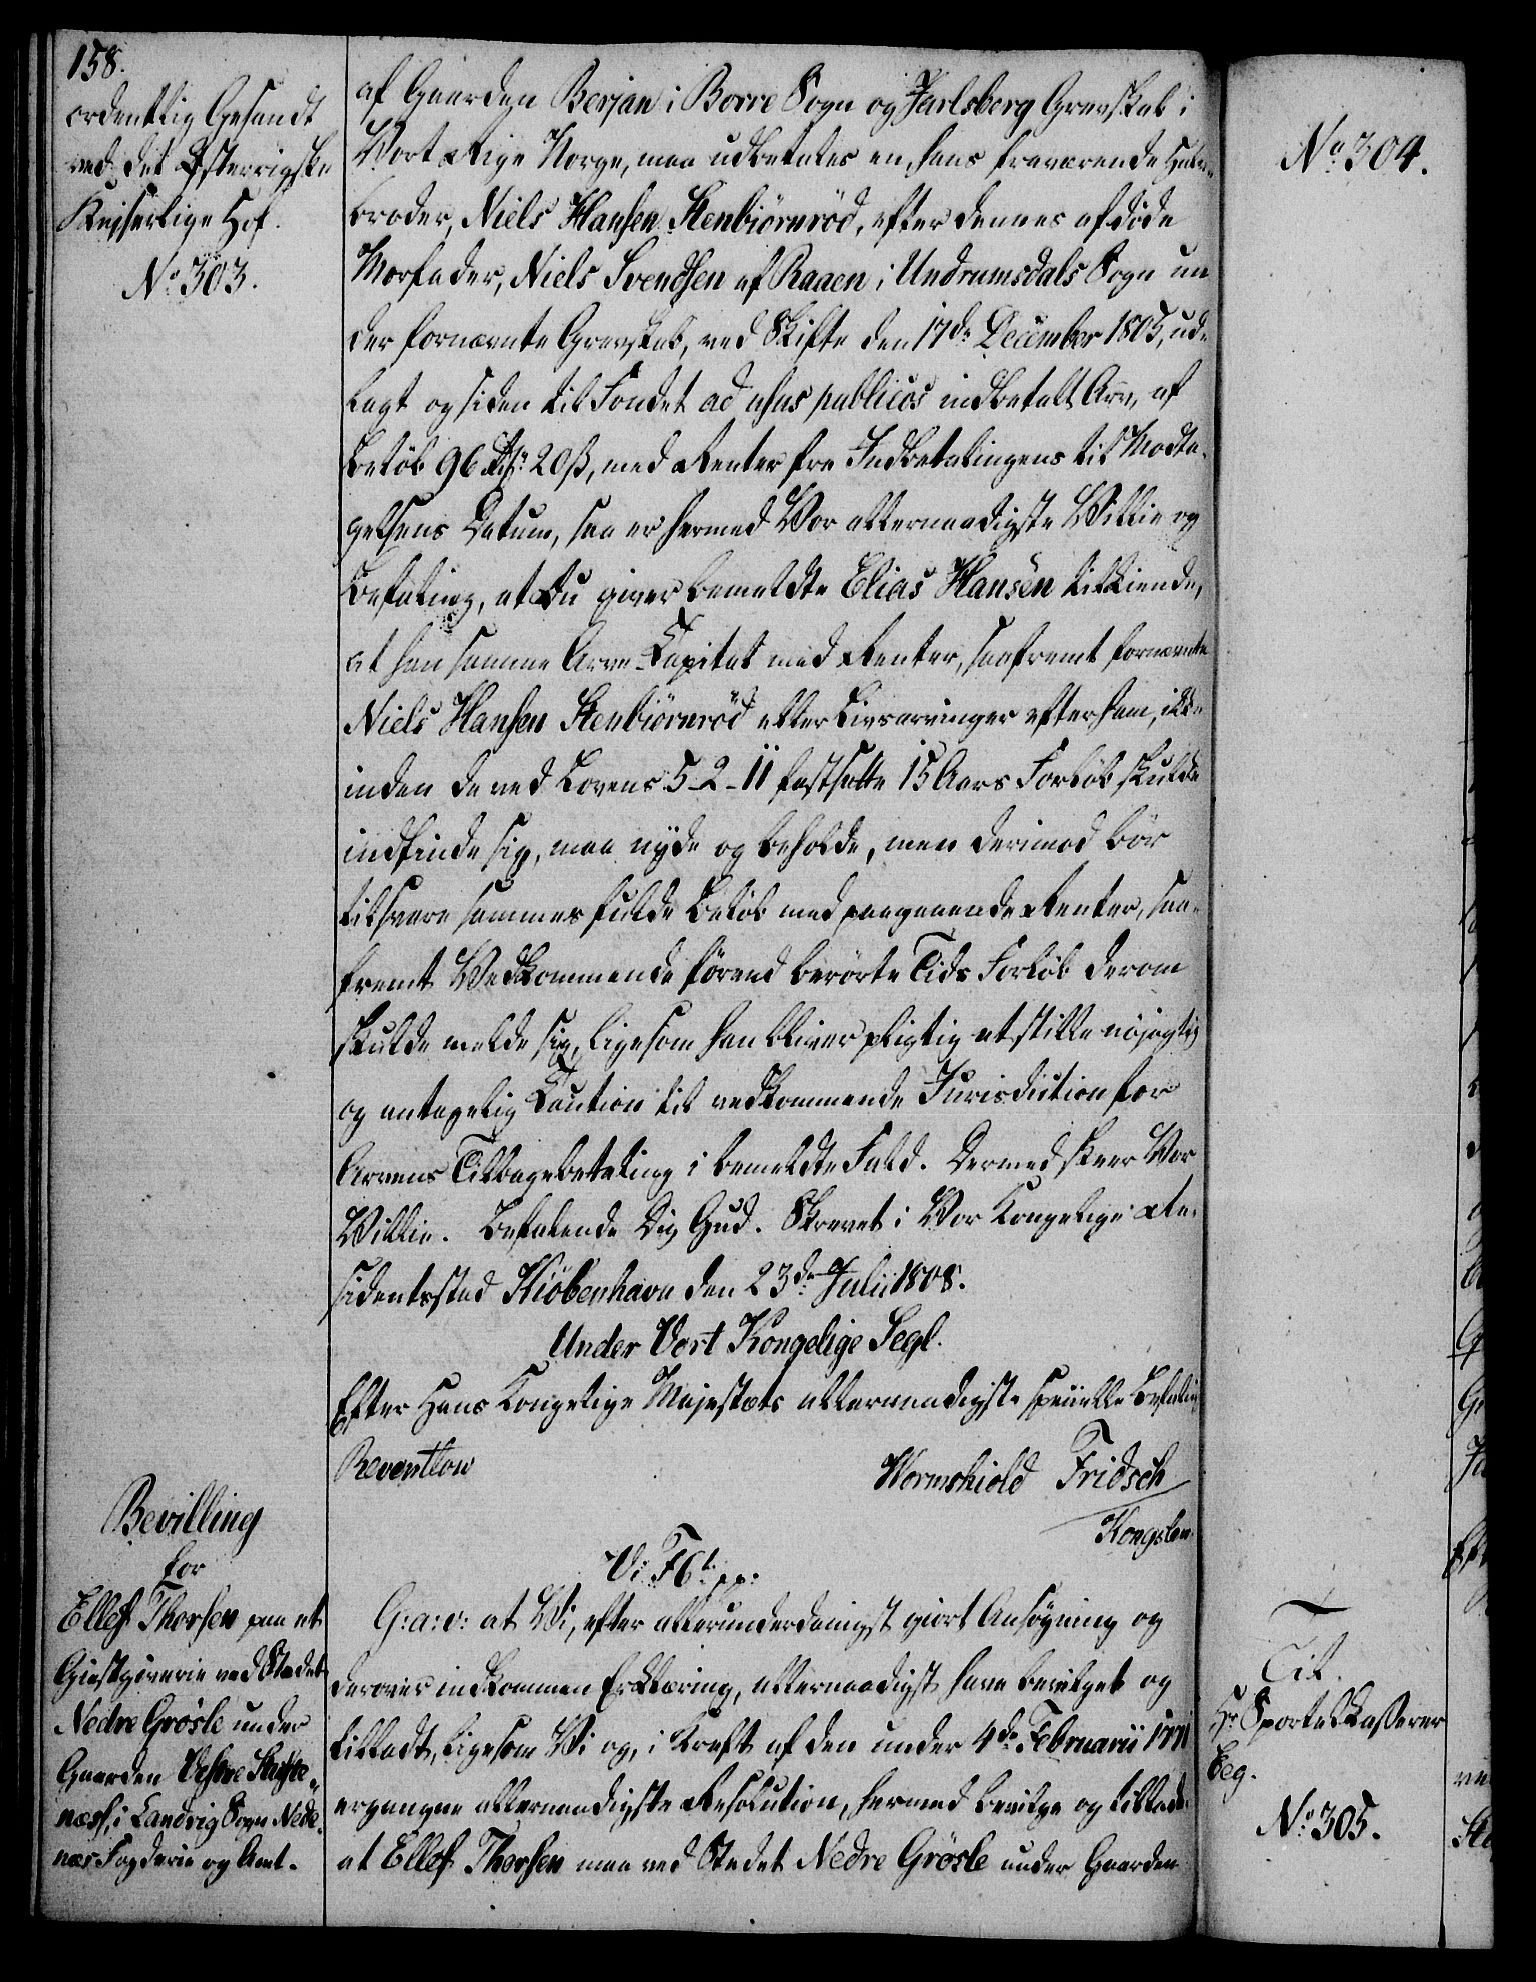 158.
ordentlig Gesandt
ved det Østerrigske
Keiserlige Hof.
No 303.
af Gaarden Berjan i Borre Sogn og Jarlsberg Grevskab i
Vort Rige Norge, maa udbetales en, hans fraværende Halv-
broder, Niels Hansen Stenbiörnröd, efter dennes afdöde
Morfader, Niels Svendsen af Raaen i Undrumsdals Sogn un-
der fornævnte Grevskab, ved Skifte den 17de December 1805, ud-
lagt og siden til Fondet ad usus publicos indbetalt Arv, af
Belöb 96 Rdr 20 ß, med Renter fra Indbetalingens til Modta-
gelsens Datum, saa er hermed Vor allernaadigste Villie og
Befaling, at Du giver bemeldte Elias Hansen tilkiende,
at han samme Arve-Capital med Renter, saafremt fornævnte
Niels Hansen Stenbiörnröd eller Livsarvinger efter ham, ikke
inden de ved Lovens 5-2-11 fastsatte 15 Aars Forlöb skulde
indfinde sig, maa nyde og beholde, men derimod bör
tilsvare sammes fulde Belöb med paagaaende Renter, saa-
fremt Vedkommende förend berörte Tids Forlöb derom
skulde melde sig, ligesom han bliver pligtig at stille nöjagtig
og antagelig Caution til vedkommende Jurisdiction for
Arvens Tilbagebetaling i bemeldte Fald. Dermed skeer Vor
Villie. Befalende Dig Gud. Skrevet i Vor Kongelige Re-
sidentsstad Kiöbenhavn den 23de Julii 1808.
Under Vort Kongelige Segl.
Efter Hans Kongelige Majestæts allernaadigste specielle Befaling
Reventlow
Wormskiold Fridsch
Kongslew
Bevilling
for
Ellef Thorsen paa et
Giestgiverie ved Stedet
Nedre Grösle under
Gaarden Vestre
næss, i Landvig Sogn Nede-
næs Fogderie og Amt.
Vi F6t pp:
G: a: v: at Vi, efter allerunderdanigst giort Ansögning og
derover indkommen Erklæring, allernaadigst have bevilget og
tilladt, ligesom Vi og, i Kraft af den under 4de Februarii 1771
ergangne allernaadigste Resolution, hermed bevilge og tillade
at Ellef Thorsen maa ved Stedet Nedre Grösle under Gaarden
No 304.
Tit.
Hr Sportelkasserer
Beg.
No 305.